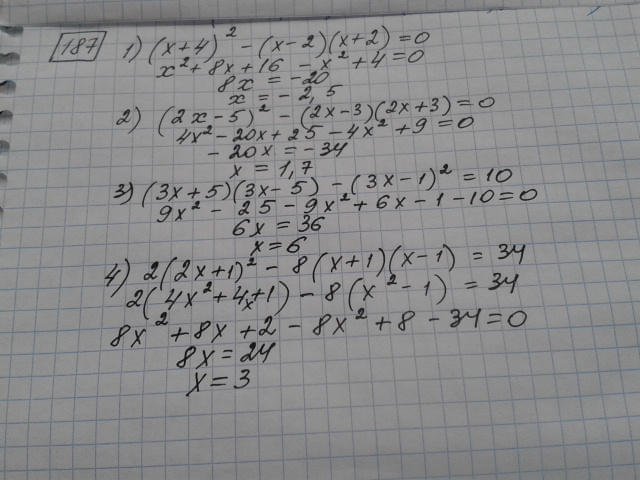 187 1) (x+4)² - (x-2)(x+2) = 0
x² + 8x + 16 - x² + 4 = 0
8x = -20
x = -2,5
2) (2x-5)² - (2x-3)(2x+3) = 0
4x² - 20x + 25 - 4x² + 9 = 0
-20x = -34
x = 1,7
3) (3x+5)(3x-5) - (3x-1)² = 10
9x² - 25 - 9x² + 6x - 1 - 10 = 0
6x = 36
x = 6
4) 2(2x+1)² - 8(x+1)(x-1) = 34
2(4x² + 4x + 1) - 8(x² - 1) = 34
8x² + 8x + 2 - 8x² + 8 - 34 = 0
8x = 24
x = 3